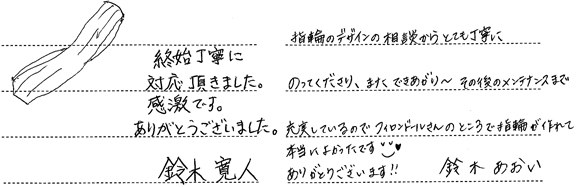 終始丁寧に
対応頂きました。
感激です。
ありがとうございました。
鈴木寛人
指輪のデザインの相談からとても丁寧に
のってくださり、またできあがり〜その後のメンテナンスまで
充実しているのでフィロンドールさんのところで指輪が作れて
本当によかったです
ありがとうございます!!
鈴木あおい